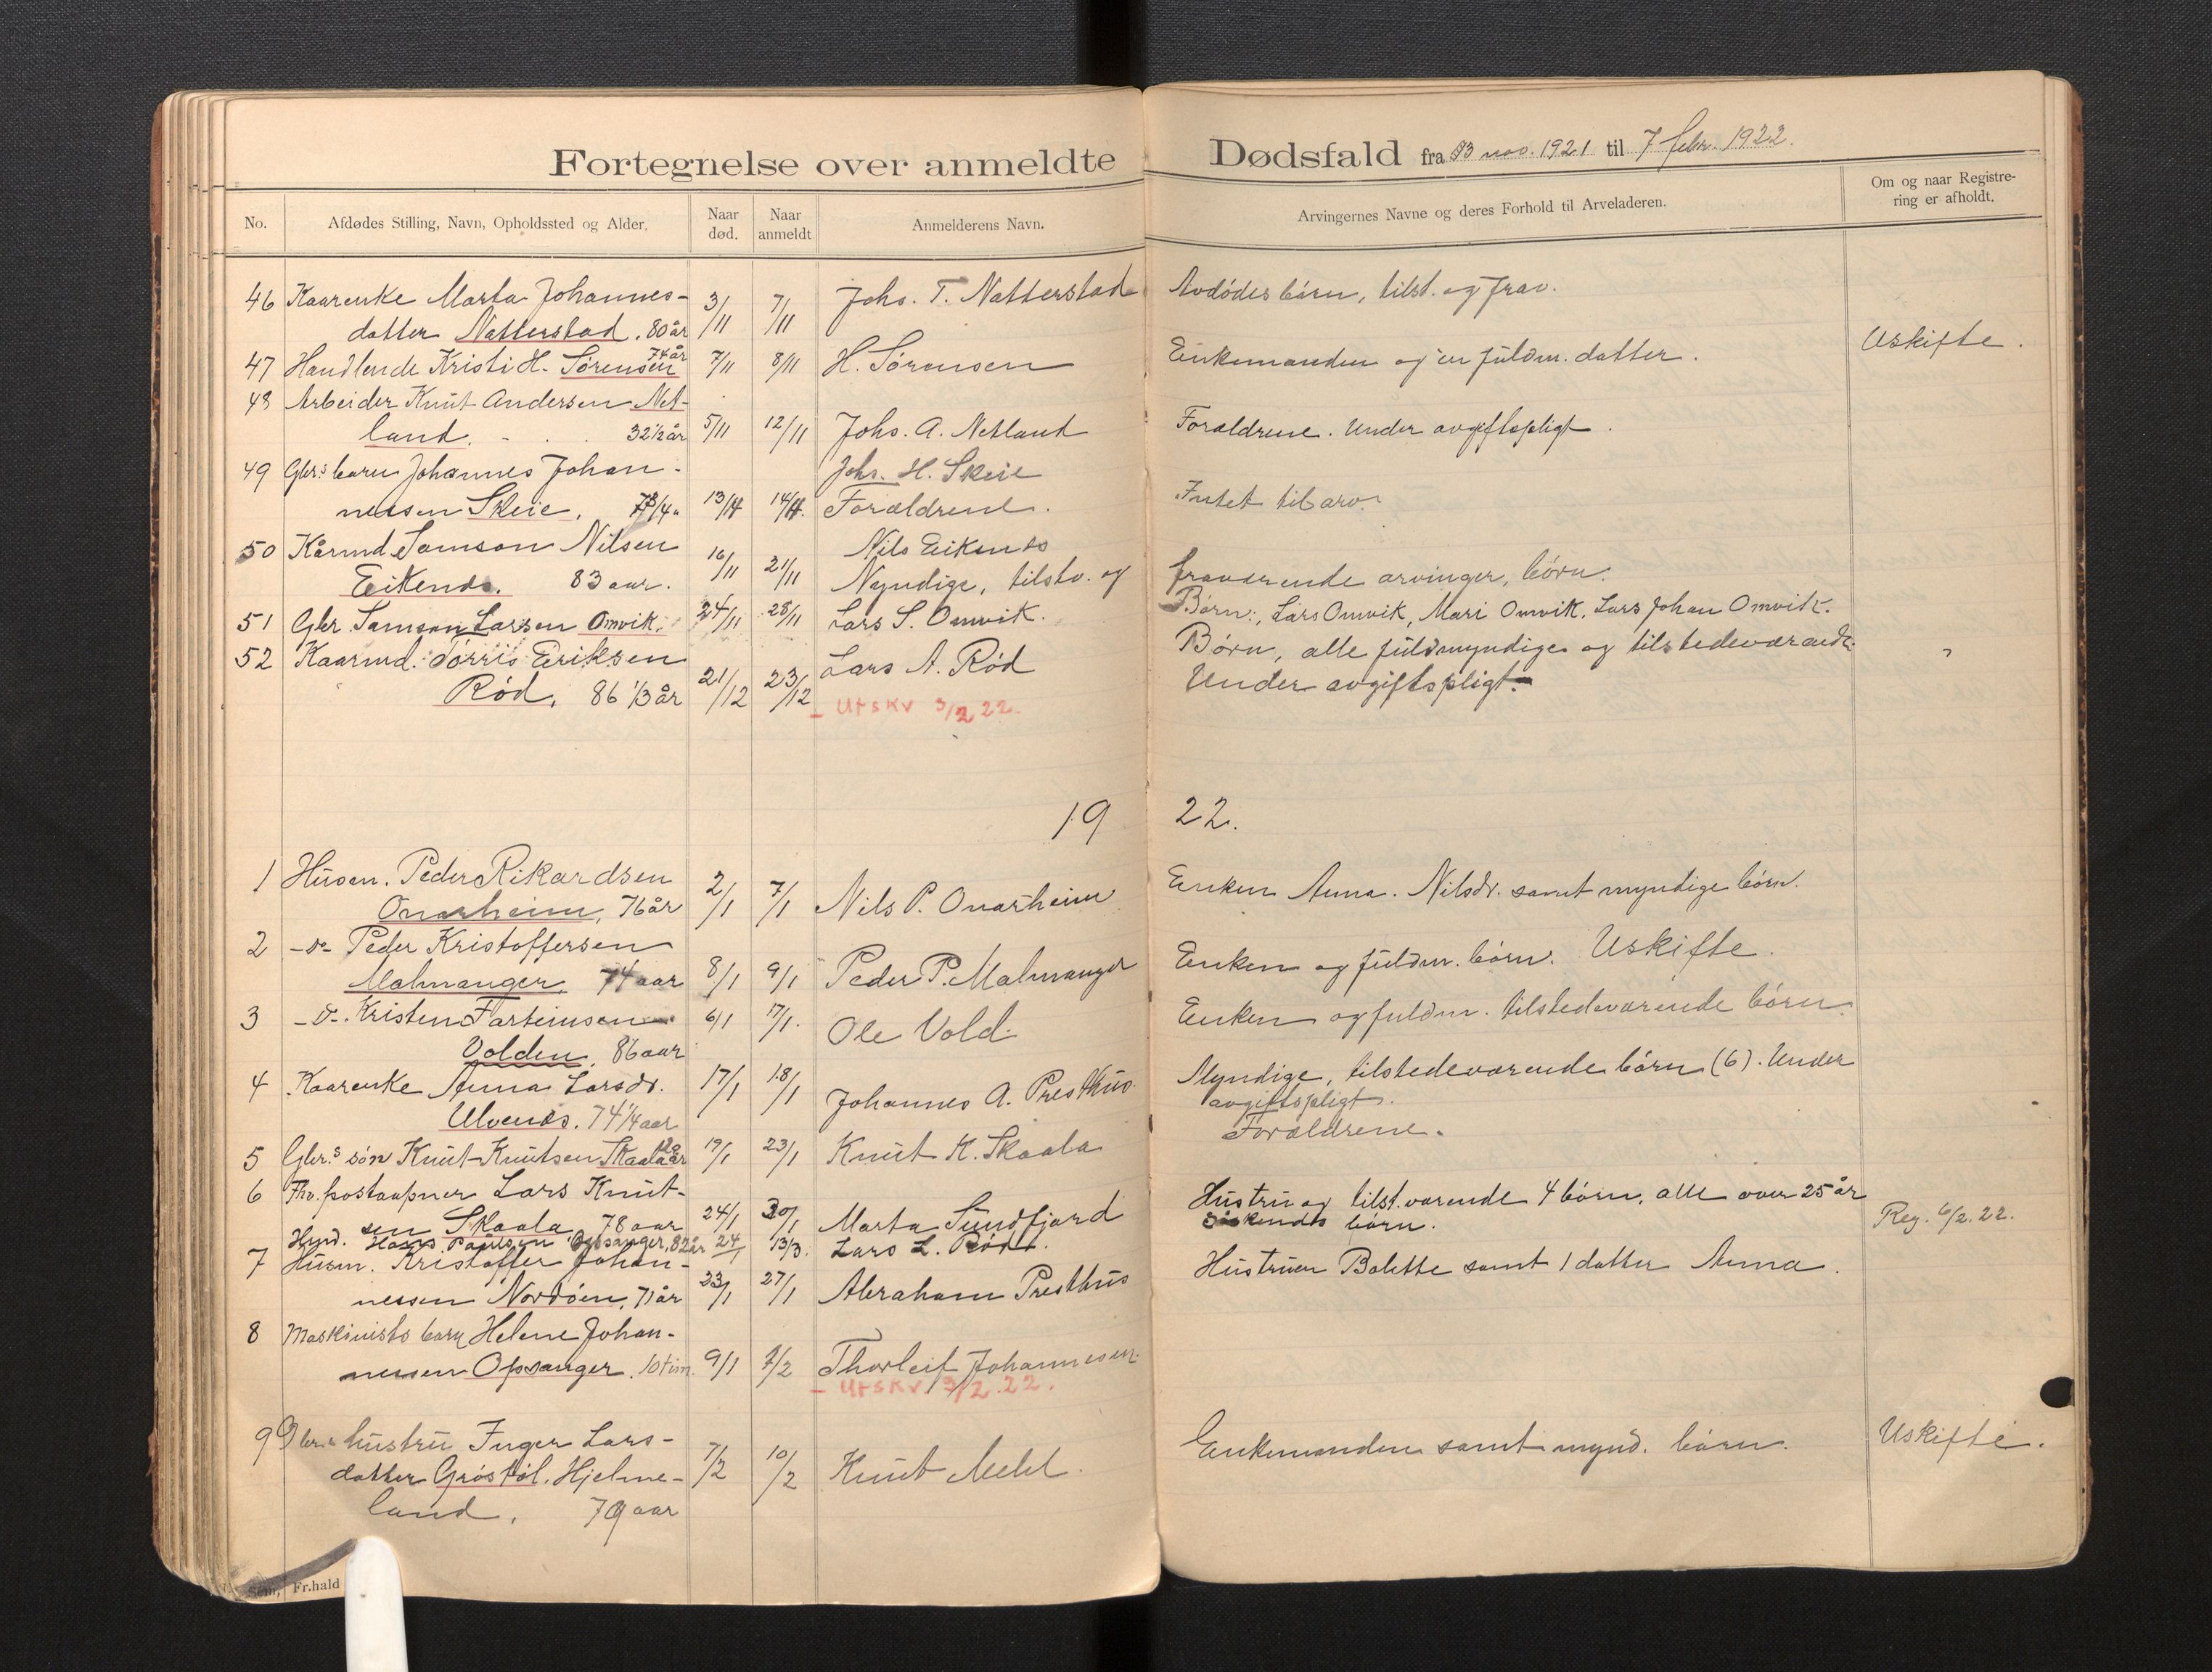 Fortegnelse over anmeldte Dødsfald fra 3 nov. 1921 til 7 febr. 1922.
No. Afdødes Stilling, Navn, Opholdssted og Alder. Naar død. Naar anmeldt Anmelderens Navn. Arvingernes Navne og deres Forhold til Arveladeren. Om og naar Registrering er afholdt.
46 Kaarenke Marta Johannes- 3/11 7/11 Johs. T. Natterstad Avdødes børn, tilst. og frav.
datter Natterstad. 80 år
47 Handlende Kristi H. Sørensen 74 år 7/11 8/11 H. Sørensen Enkemanden og en fuldm. datter. Uskifte.
48 Arbeider Knut Andersen Net-
land. 32 1/2 år 5/11 12/11 Johs. A. Netland Forældrene. Under avgiftspligt.
49 Gbr.s barn Johannes Johan- Johs. H. Skeie
nessen Skeie. 13/11 14/11. Forældrene. Intet til arv.
50 Kårmd Samson Nilsen 16/11 21/11 Nils Eikenes
Eikenes. 83 aar. Myndige, tilstv. og fraværende arvinger, børn.
51 Gbr. Samson Larsen Omvik. 24/11 28/11 Lars S. Omvik. Børn:, Lars Omvik, Mari Omvik, Lars Johan Omvik.
52 Kaarmd. Torris Eriksen Lars A. Rød Børn, alle fuldmyndige og tilstedeværende.
Rød, 86 1/3 år 21/12 23/12 Under avgiftspligt.
- Utskr 3/2 22.
1922.
1 Husm. Peder Rikardsen 2/1 7/1 Nils P. Onarheim Enken Anna Nilsdr. samt myndige børn.
Onarheim, 76 år
2 -"- Peder Kristoffersen
Malmanger, 74 aar 8/1 9/1 Peder P. Malmanger Enken og fuldm. børn. Uskifte.
3 -"- Kristen Farteinsen 6/1 17/1. Ole Vold. Enken og fuldm. tilstedeværende børn.
Volden, 86 aar
4 Kaarenke Anna Larsdr. 17/1 18/1 Johannes A. Presthus. Myndige, tilstedeværende børn (6). Under
Ulvenes. 74 1/4 aar avgiftspligt.
5 Gbr.s søn Knut Knutsen Skaala 19/1 23/1 Knut K. Skaala Forældrene.
6 Fhv. postaapner Lars Knut-
sen Skaala 78 aar 24/1 30/1 Marta Sundfjord Hustru og tilst. værende 4 børn, alle over 25 år Reg. 6/2. 22.
Hans Paulsen Opsanger, 82 år 24/1 13/3. Lars L. Rød. Søskendes børn.
7 Husm. Kristoffer Johan-
nessen Nordøen, 71 år 23/1 27/1 Abraham Presthus Hustruen Bolette samt 1 datter Anna.
8 Maskinists barn Helene Johan-
nessen Opsanger. 10 tim. 9/1 1/2 Thorleif Johannesen.
- Utskr. 3/2. 22.
9 Gbr.s hustru Inger Lars-
datter Grøstøl, Hjelme- 7/2 10/2 Knut Mehl. Enkemanden samt mynd. børn. Uskifte.
land. 79 aar
Sem, Fr.hald